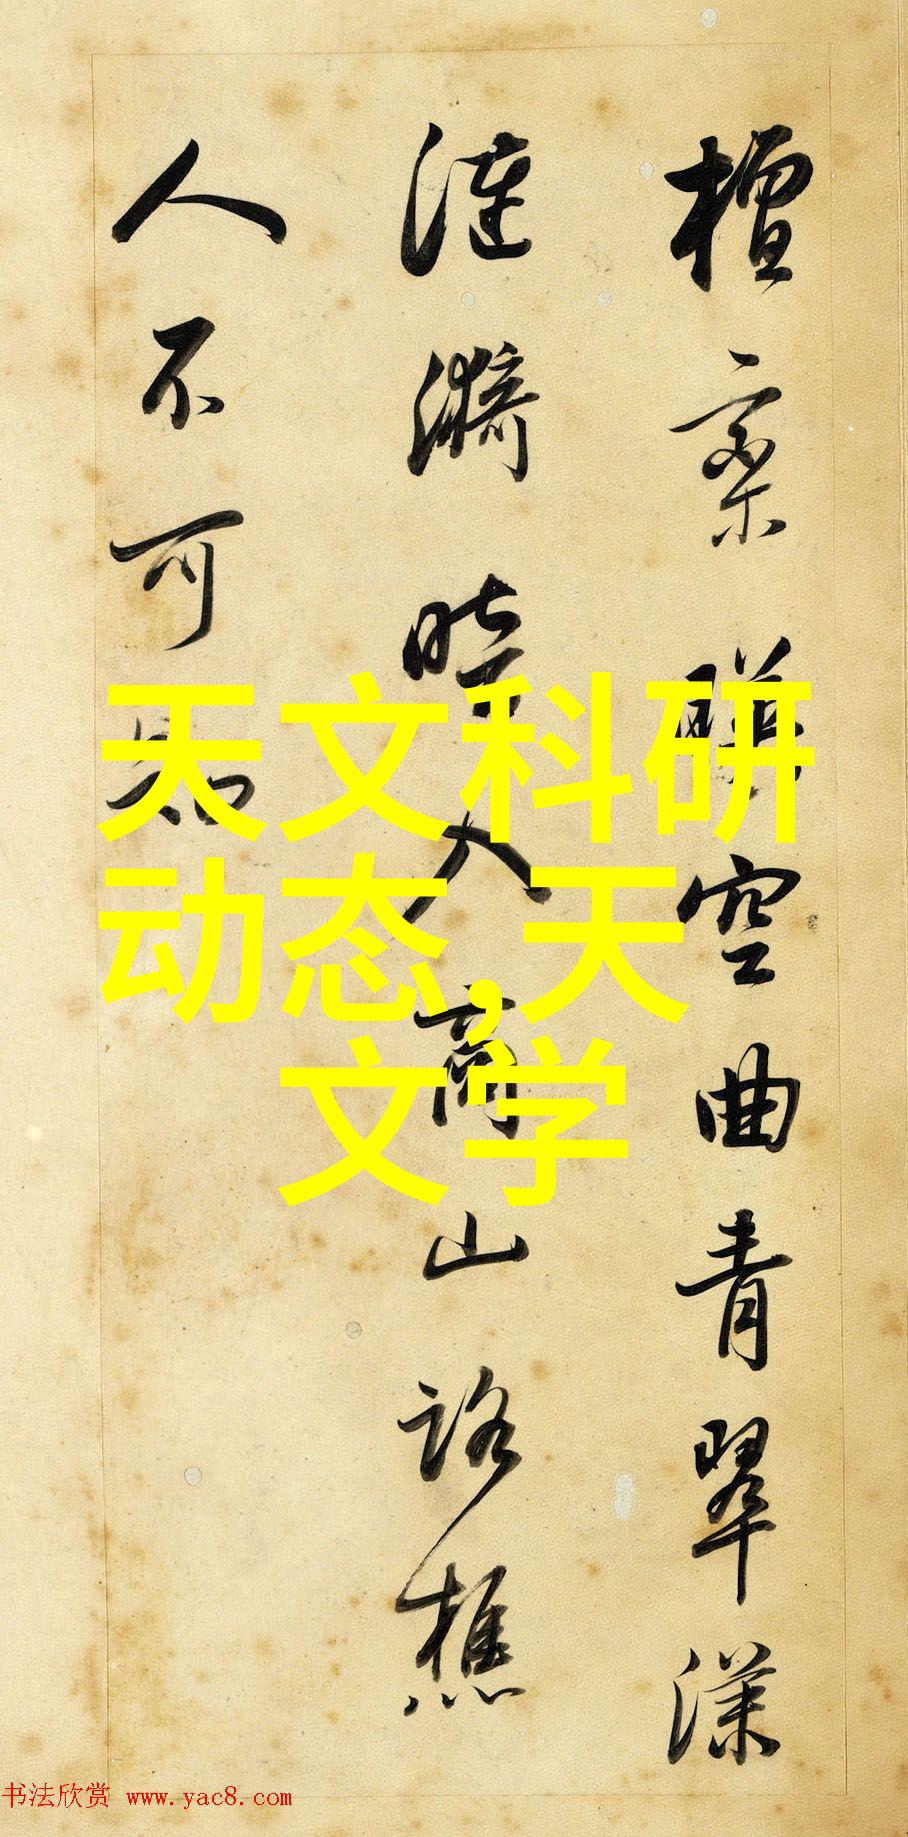 檀栾映空曲青翠漾
涟漪暗入商山路樵
人不可知
天文科研
动态,天
文学
书法欣赏 www.yac8.com